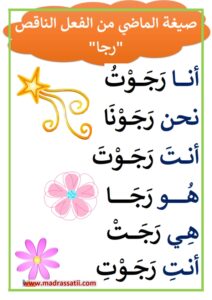 صيغة الماضي من الفعل الناقص
"رجا"
أنـا رَجَـوْتُ
نحن رَجَـوْنَا
أنـتَ رَجَـوْتَ
هُـو رَجَــا
هِي رَجَـتْ
أنـتِ رَجَـوْتِ
www.madrassatii.com